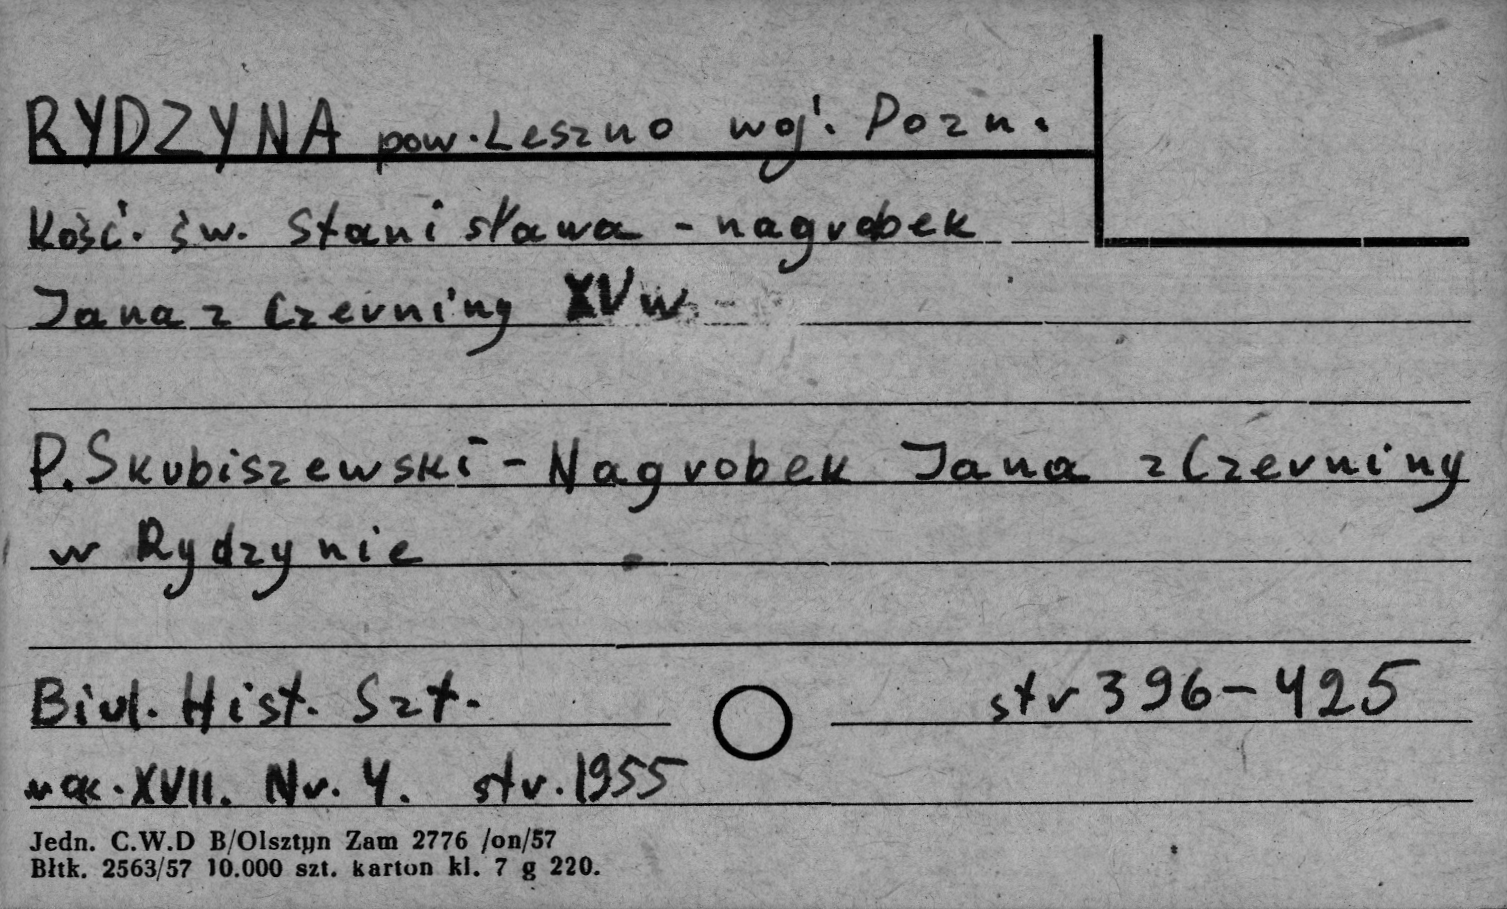 RYDZYNA pow. Leszno woj. Pozn.
Kość. św. Stanisława - nagrobek
Jana z Czerniny XV w.
P. Skubiszewski - Nagrobek Jana z Czerniny
w Rydzynie
Biul. Hist. Szt. str 396-425
XVII. Nr. 4. str. 1955
Jedn. C.W.D B/Olsztyn Zam 2776 /on/57
Błtk. 2563/57 10.000 szt. karton kl. 7 g 220.